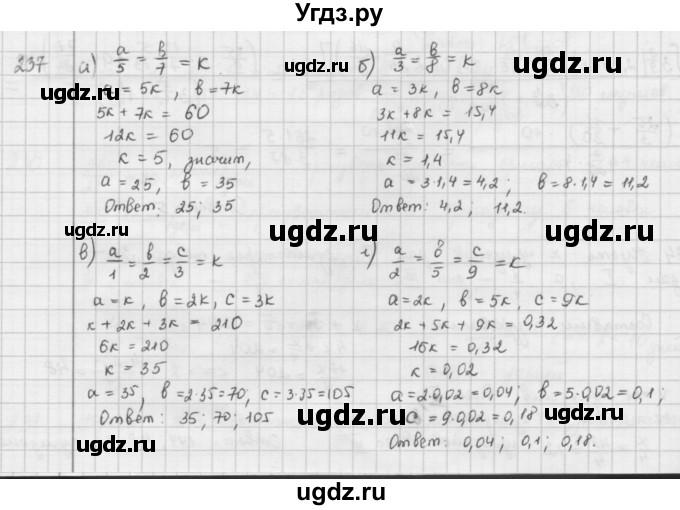 Угдз.ру
237 а) a/5 = b/7 = к
a = 5к, b = 7к
5к + 7к = 60
12к = 60
к = 5, значит,
a = 25, b = 35
Ответ: 25; 35
б) a/3 = b/8 = к
a = 3к, b = 8к
3к + 8к = 15,4
11к = 15,4
к = 1,4
a = 3·1,4 = 4,2; b = 8·1,4 = 11,2
Ответ: 4,2; 11,2.
в) a/1 = b/2 = c/3 = к
a = к, b = 2к, c = 3к
к + 2к + 3к = 210
6к = 210
к = 35
a = 35, b = 2·35 = 70, c = 3·35 = 105
Ответ: 35; 70; 105
г) a/2 = b/5 = c/9 = к
a = 2к, b = 5к, c = 9к
2к + 5к + 9к = 0,32
16к = 0,32
к = 0,02
a = 2·0,02 = 0,04; b = 5·0,02 = 0,1;
c = 9·0,02 = 0,18
Ответ: 0,04; 0,1; 0,18.
ugdz.ru
ugdz.ru
ugdz.ru
ugdz.ru
ugdz.ru
ugdz.ru
ugdz.ru
ugdz.ru
ugdz.ru
ugdz.ru
ugdz.ru
ugdz.ru
ugdz.ru
ugdz.ru